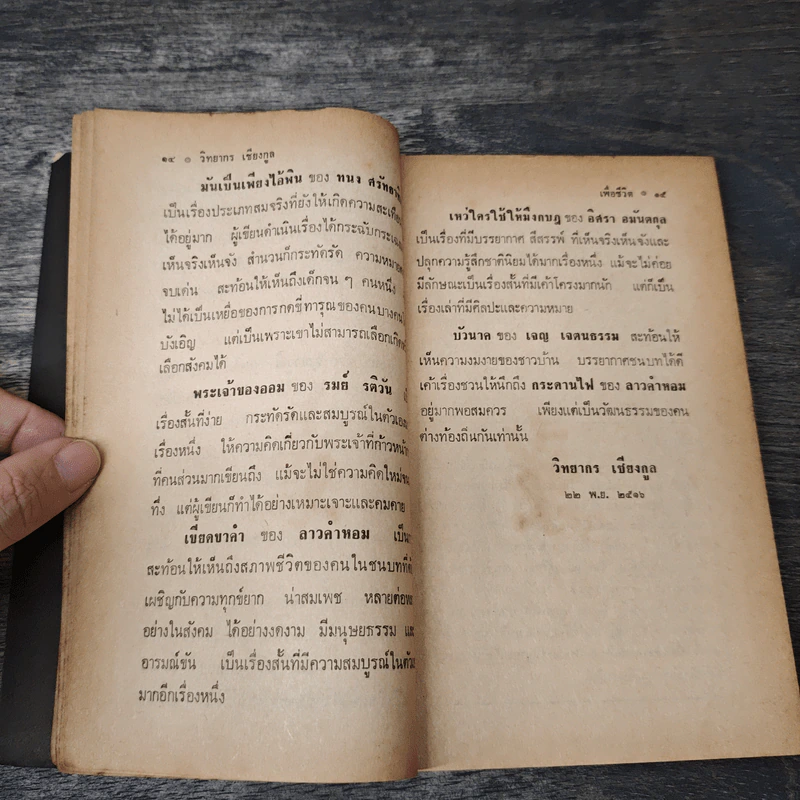 ๑๔ ๏ วิทยากร เชียงกูล
มันเป็นเพียงไอ้พิน ของ ทนง
เป็นเรื่องประเภทสมจริงที่ยังให้เกิดความสะเทือน
ได้อยู่มาก ผู้เขียนดำเนินเรื่องได้กระฉับกระเฉง
เห็นจริงเห็นจัง สำนวนก็กระทัดรัด ความหมาย
จบเด่น สะท้อนให้เห็นถึงเด็กจน ๆ คนหนึ่ง
ไม่ได้เป็นเหยื่อของการกดขี่ทารุณของคนบางคน
บังเอิญ แต่เป็นเพราะเขาไม่สามารถเลือกเกิด
เลือกสังคมได้
พระเจ้าของออม ของ รมย์ รติวัน
เรื่องสั้นที่ง่าย กระทัดรัดและสมบูรณ์ในตัวเอง
เรื่องหนึ่ง ให้ความคิดเกี่ยวกับพระเจ้าที่ก้าวหน้า
ที่คนส่วนมากเขียนถึง แม้จะไม่ใช่ความคิดใหม่จน
ทึ่ง แต่ผู้เขียนก็ทำได้อย่างเหมาะเจาะและคมคาย
เขียดขาคำ ของ ลาวคำหอม
สะท้อนให้เห็นถึงสภาพชีวิตของคนในชนบทที่
เผชิญกับความทุกข์ยาก น่าสมเพช หลายต่อ
อย่างในสังคม ได้อย่างงดงาม มีมนุษยธรรม และ
อารมณ์ขัน เป็นเรื่องสั้นที่มีความสมบูรณ์ใน
มากอีกเรื่องหนึ่ง
เพื่อชีวิต ๏ ๑๕
เหว่ใครใช้ให้มึงกบฎ ของ อิศรา อมันตกุล
เป็นเรื่องที่มีบรรยากาศ สีสรรพ์ ที่เห็นจริงเห็นจังและ
ปลุกความรู้สึกชาตินิยมได้มากเรื่องหนึ่ง แม้จะไม่ค่อย
มีลักษณะเป็นเรื่องสั้นที่มีเค้าโครงมากนัก แต่ก็เป็น
เรื่องเล่าที่มีศิลปะและความหมาย
บัวนาค ของ เจญ เจตนธรรม สะท้อนให้
เห็นความงมงายของชาวบ้าน บรรยากาศชนบทได้ดี
เค้าเรื่องชวนให้นึกถึง กระดานไฟ ของ ลาวคำหอม
อยู่มากพอสมควร เพียงแต่เป็นวัฒนธรรมของคน
ต่างท้องถิ่นกันเท่านั้น
วิทยากร เชียงกูล
๒๒ พ.ย. ๒๕๑๖